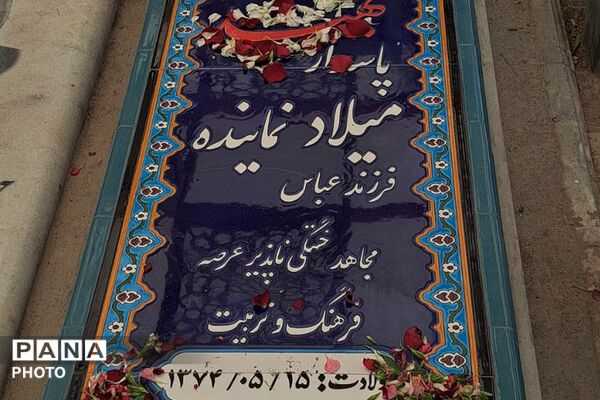 پاسدار
میلاد نماینده
فرزند عباس
مجاهد خستگی ناپذیر عرصه
فرهنگ و تربیت
ولادت: ۱۳۷۴/۰۵/۱۵
PANA
PHOTO